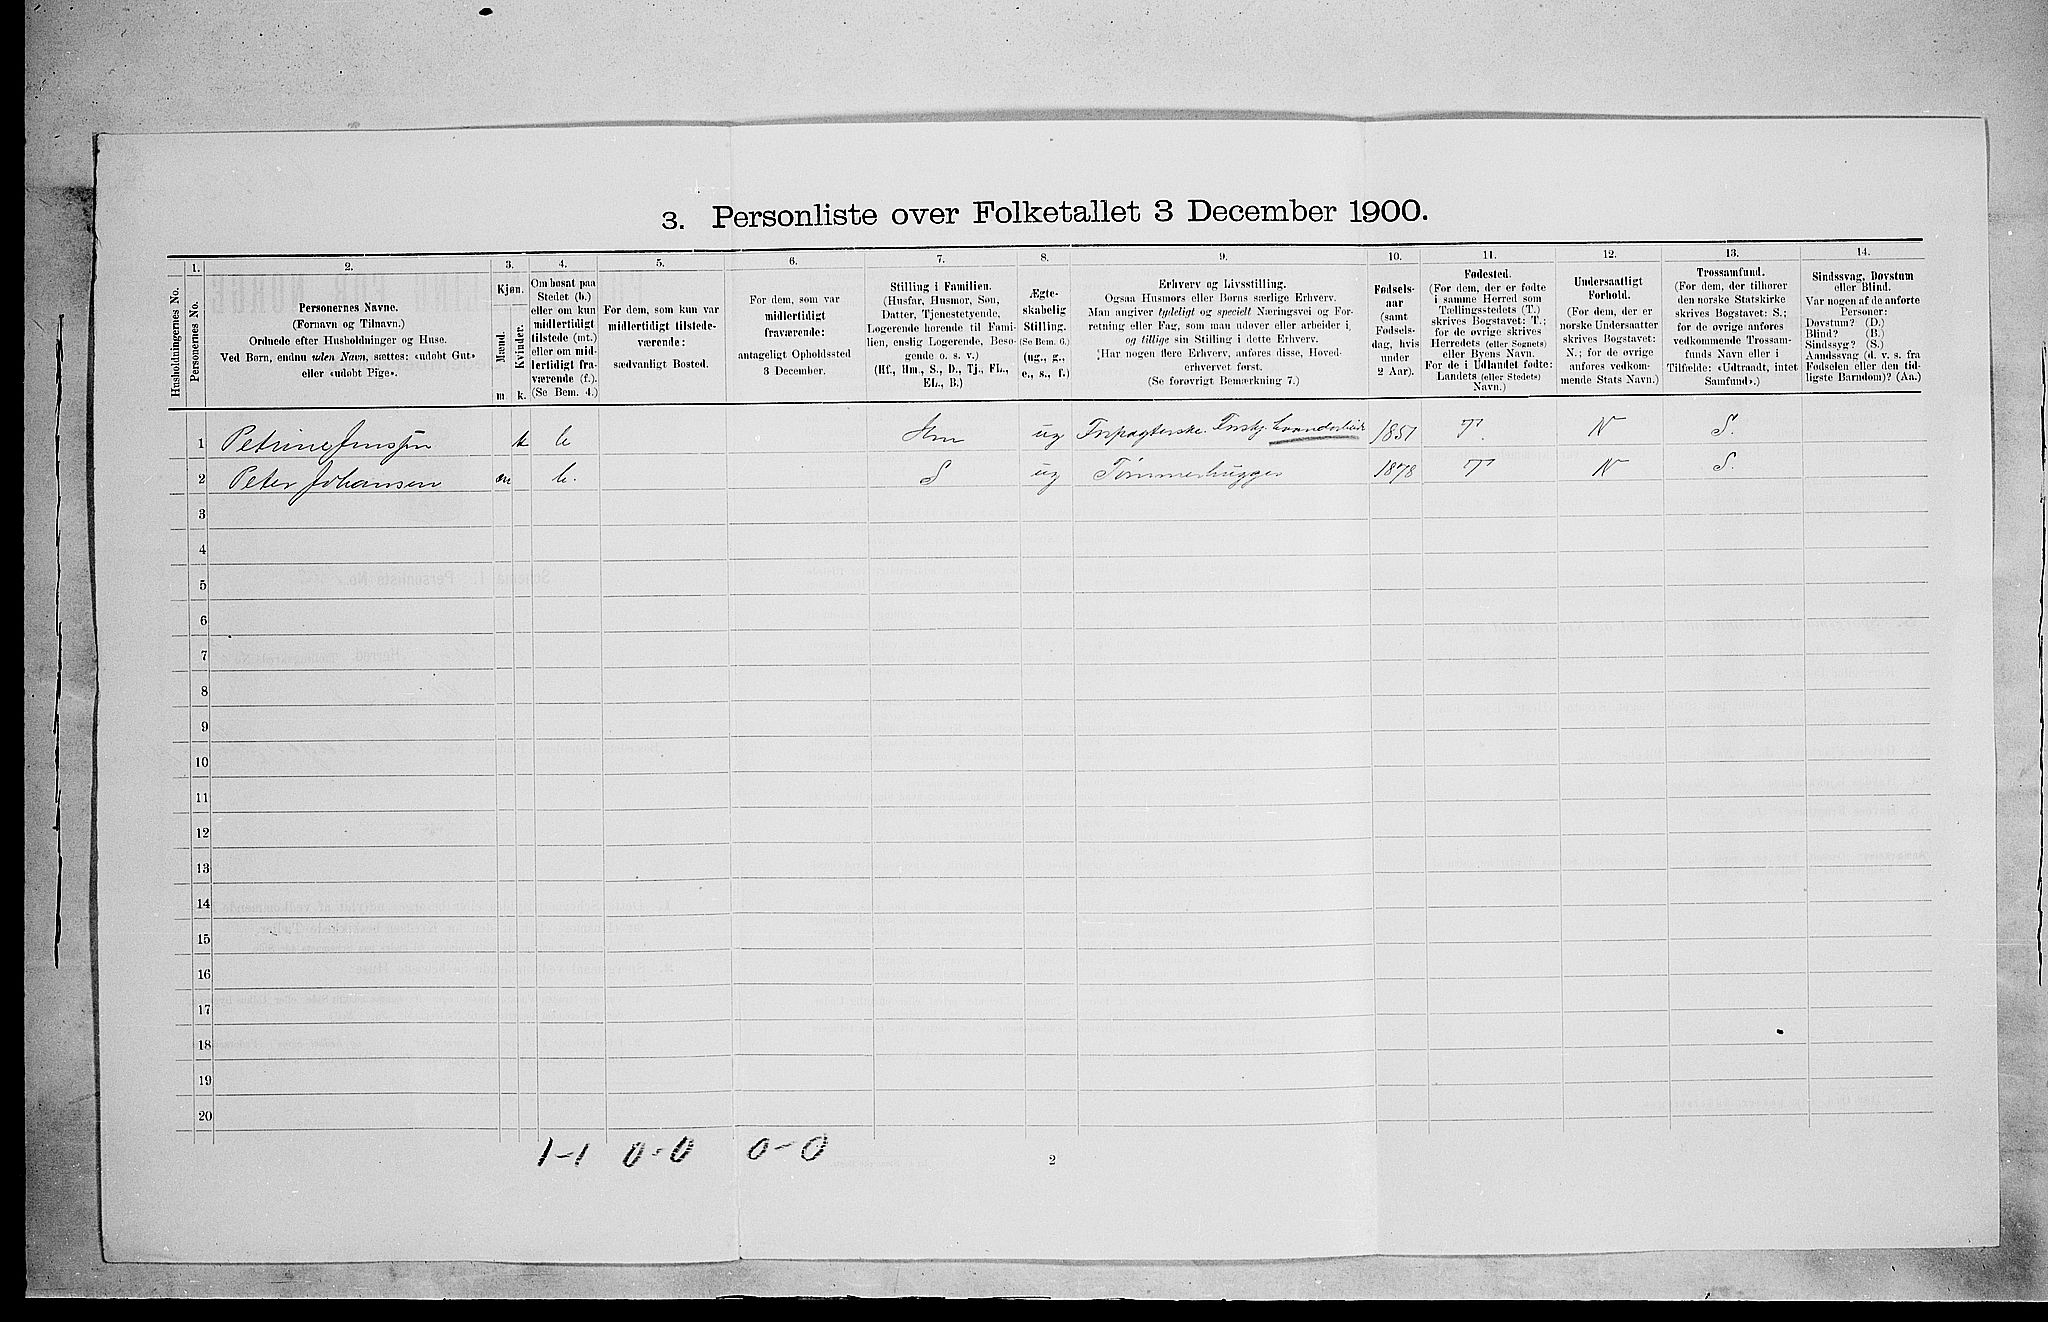 3. Personliste over Folketallet 3 December 1900.
Husholdningernes No.
1.
Personernes No.
2.
Personernes Navne.
(Fornavn og Tilnavn.)
Ordnede efter Husholdninger og Huse.
Ved Børn, endnu uden Navn, sættes: «udøbt Gut»
eller «udøbt Pige».
3.
Kjøn.
Mænd.
Kvinder.
m. k.
4.
Om bosat paa
Stedet (b.)
eller om kun
midlertidigt
tilstede (mt.)
eller om mid-
lertidigt fra-
værende (f.).
(Se Bem. 4.)
5.
For dem, som kun var
midlertidigt tilstede-
værende:
sædvanligt Bosted.
6.
For dem, som var
midlertidigt
fraværende:
antageligt Opholdssted
3 December.
7.
Stilling i Familien.
(Husfar, Husmor, Søn,
Datter, Tjenestetyende,
Logerende hørende til Fami-
lien, enslig Logerende, Besø-
gende o. s. v.)
(Hf., Hm., S., D., Tj., FL.,
EL., B.)
8.
Ægte-
skabelig
Stilling.
(Se Bem. 6.)
(ug., g.,
e., s., f.)
9.
Erhverv og Livsstilling.
Ogsaa Husmors eller Børns særlige Erhverv.
Man angiver tydeligt og specielt Næringsvei og For-
retning eller Fag, som man udøver eller arbeider i,
og tillige sin Stilling i dette Erhverv.
(Har nogen flere Erhverv, anføres disse, Hoved-
erhvervet først.
(Se forøvrigt Bemærkning 7.)
10.
Fødsels-
aar
(samt
Fødsels-
dag, hvis
under
2 Aar).
11.
Fødested.
(For dem, der er fødte
i samme Herred som
Tællingsstedets (T.)
skrives Bogstavet: T.;
for de øvrige skrives
Herredets (eller Sognets)
eller Byens Navn.
For de i Udlandet fødte:
Landets (eller Stedets)
Navn.)
12.
Undersaatligt
Forhold.
(For dem, der er
norske Undersaatter
skrives Bogstavet:
N.; for de øvrige
anføres vedkom-
mende Stats Navn.)
13.
Trossamfund.
(For dem, der tilhører
den norske Statskirke
skrives Bogstavet: S.;
for de øvrige anføres
vedkommende Trossam-
funds Navn eller i
Tilfælde: «Udtraadt, intet
Samfund».)
14.
Sindssvag, Døvstum
eller Blind.
Var nogen af de anførte
Personer:
Døvstum? (D.)
Blind? (B.)
Sindssyg? (S.)
Aandssvag (d. v. s. fra
Fødselen eller den tid-
ligste Barndom)? (Aa.)
1 Petrine Jensen k b Hm ug 1851 T. N S.
2 Peter Johansen m b. S ug Tømmerhugger 1878 T N S.
3
4
5
6
7
8
9
10
11
12
13
14
15
16
17
18
19
20
1-1 0-0 0-0
2